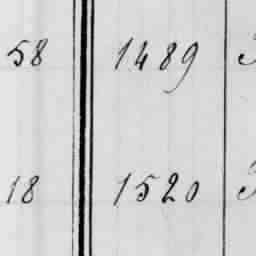 58 1489
18 1520